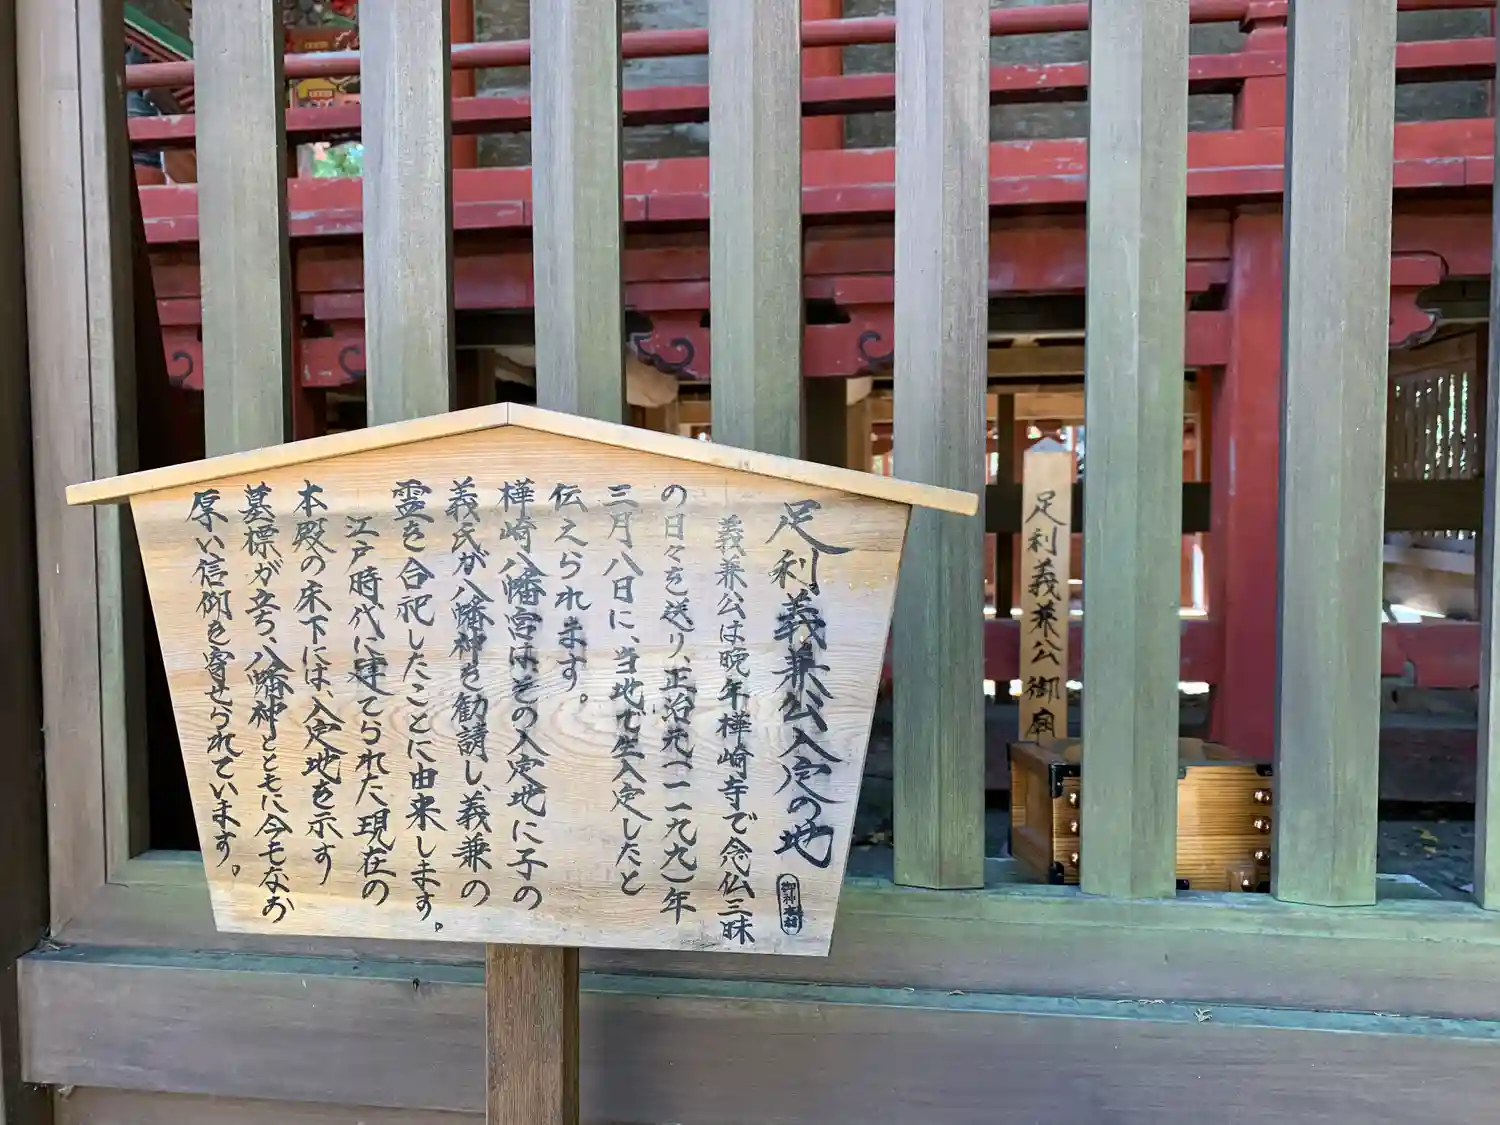 足利義兼公入定の地
義兼公は晩年樺崎寺で念仏三昧
の日々を送り、正治元(一一九九)年
三月八日に、当地で生入定したと
伝えられます。
樺崎八幡宮はその入定地に子の
義氏が八幡神を勧請し、義兼の
霊を合祀したことに由来します。
江戸時代に建てられた現在の
本殿の床下には、入定地を示す
墓標が立ち、八幡神とともに今もなお
厚い信仰を寄せられています。
足利義兼公御廟